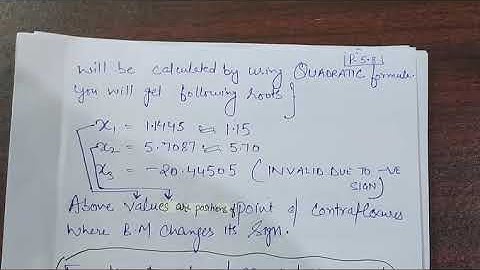 P-5.8
will be calculated by using QUADRATIC formula.
You will get following roots }
x₁ = 1.1445 ≈ 1.15
x₂ = 5.7087 ≈ 5.70
x₃ = -20.44505 (INVALID DUE TO -VE SIGN)
Above values are positions of point of contraflexures
where B.M changes its sign.